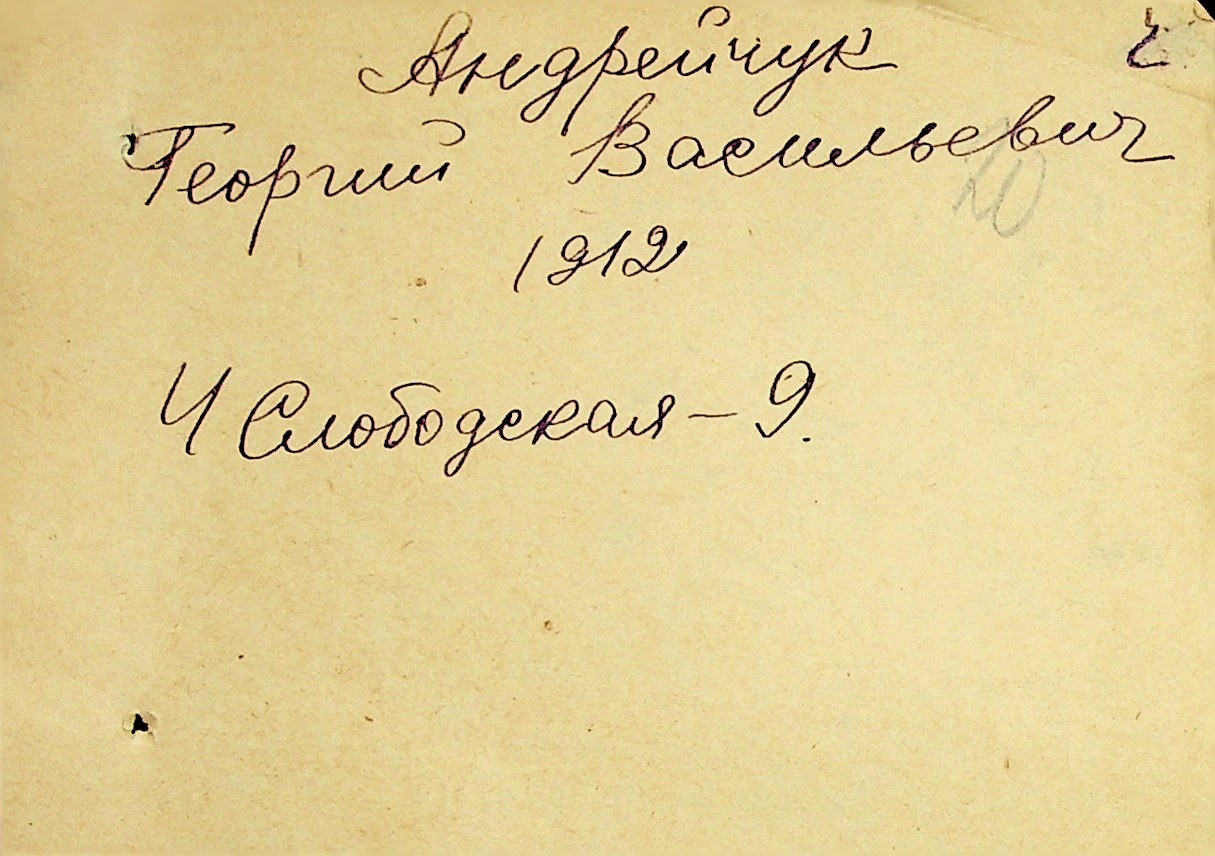 Андрейчук
Георгий Васильевич
1912
Ч Слободская – 9.